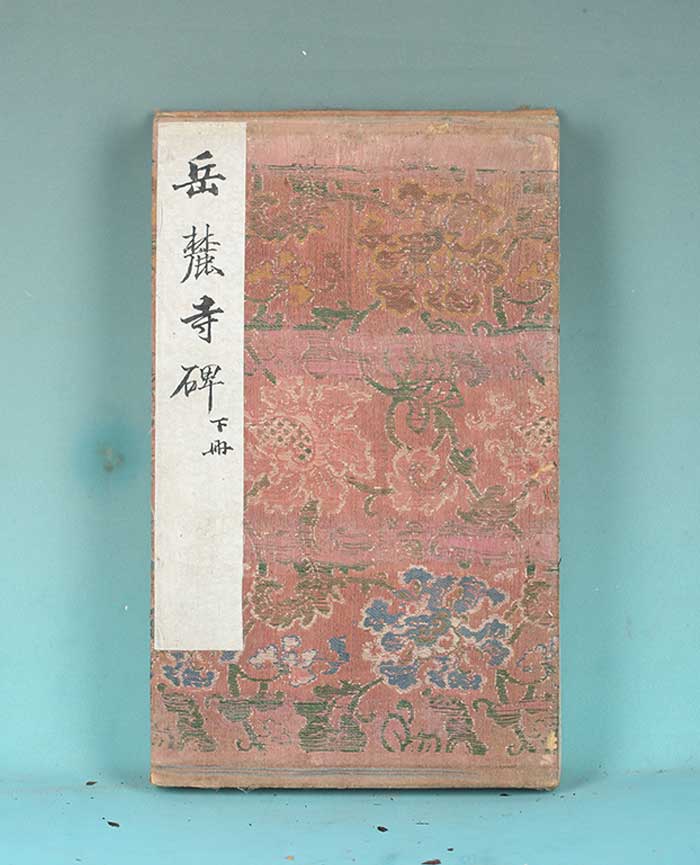 岳麓寺碑
下册